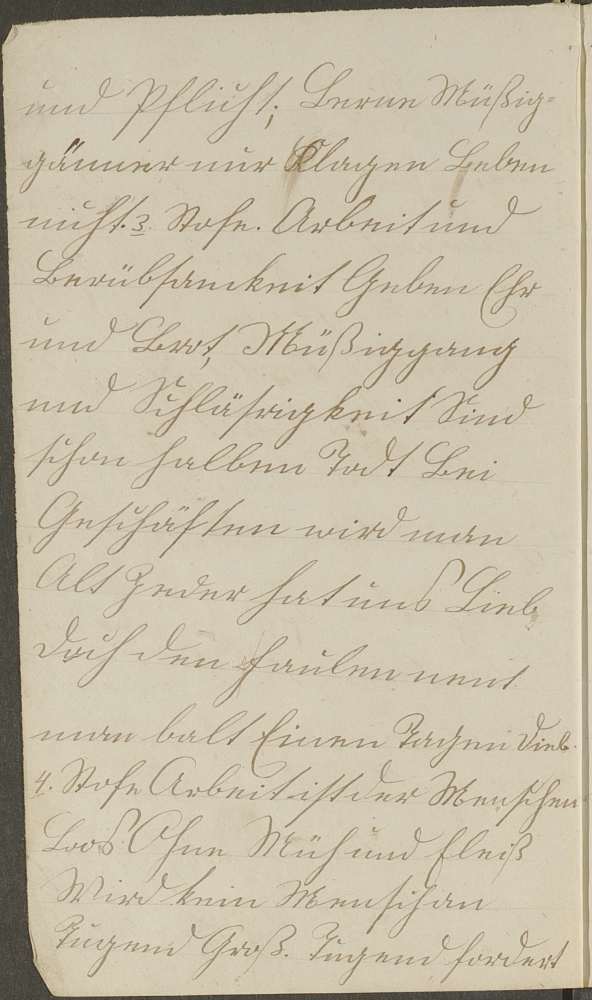 und Pflicht; Lerne Müßig-
gänner nur Klagen Leben
nicht. 3. Stofe. Arbeit und
Berübsamkeit Geben Ehr
und Brot, Müßiggang
und Schläfrigkeit Sind
schon halben Todt Bei
Geschäften wird man
Alt Jeder hat uns Lieb
Doch den faulen nent
man balt Einen Tagen Dieb.
4. Stofe Arbeit ist der Menschen
Loos Ohne Müh und fleiß
Wird kein Mensch an
Tugend Groß. Tugend fordert